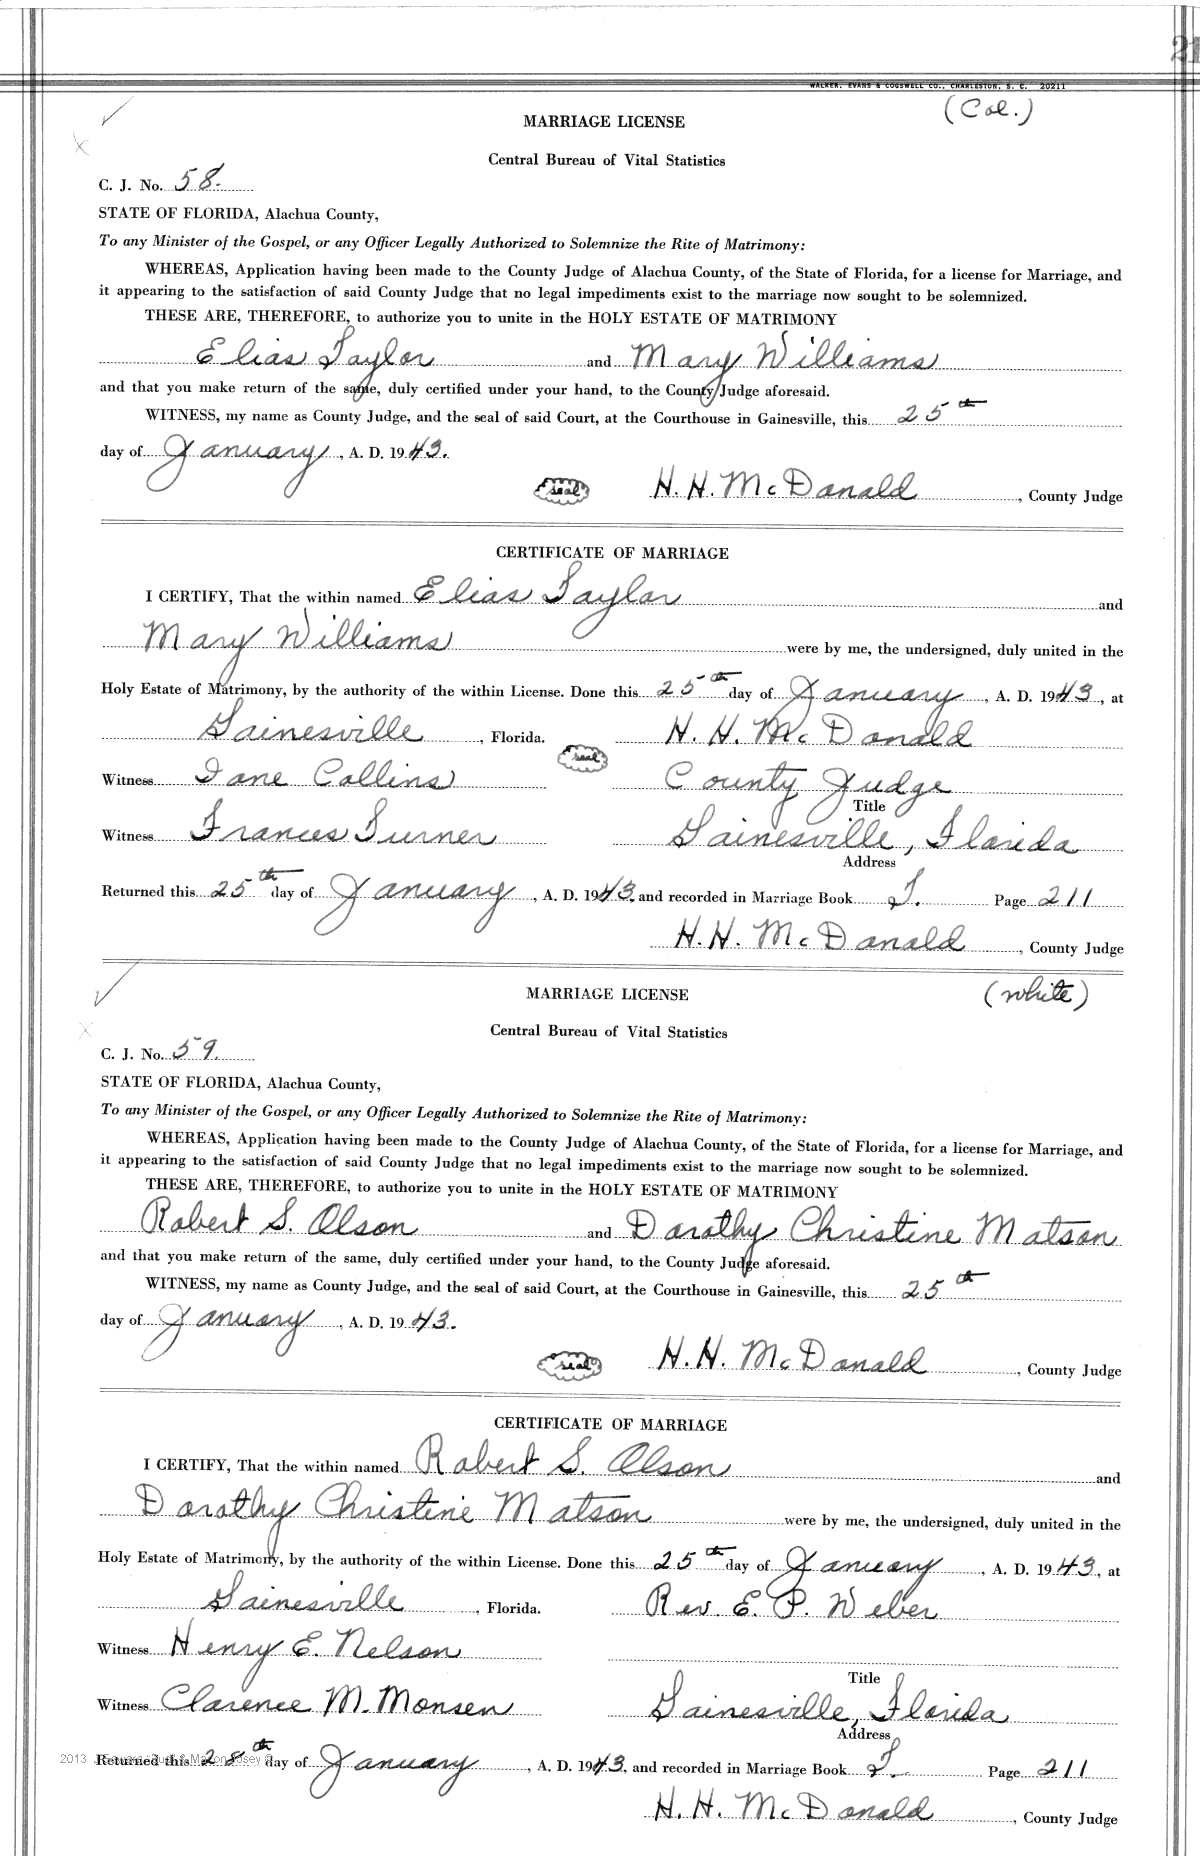 21
WALKER, EVANS & COGSWELL CO., CHARLESTON, S. C. 20211
(Col.)
MARRIAGE LICENSE
Central Bureau of Vital Statistics
C. J. No. 58.
STATE OF FLORIDA, Alachua County,
To any Minister of the Gospel, or any Officer Legally Authorized to Solemnize the Rite of Matrimony:
WHEREAS, Application having been made to the County Judge of Alachua County, of the State of Florida, for a license for Marriage, and
it appearing to the satisfaction of said County Judge that no legal impediments exist to the marriage now sought to be solemnized.
THESE ARE, THEREFORE, to authorize you to unite in the HOLY ESTATE OF MATRIMONY
Elias Taylor and Mary Williams
and that you make return of the same, duly certified under your hand, to the County Judge aforesaid.
WITNESS, my name as County Judge, and the seal of said Court, at the Courthouse in Gainesville, this 25th
day of January, A. D. 1943.
seal H. H. McDonald, County Judge
CERTIFICATE OF MARRIAGE
I CERTIFY, That the within named Elias Taylor and
Mary Williams were by me, the undersigned, duly united in the
Holy Estate of Matrimony, by the authority of the within License. Done this 25th day of January, A. D. 1943, at
Gainesville, Florida. seal H. H. McDonald
Witness Jane Collins County Judge
Title
Witness Frances Turner Gainesville, Florida
Address
Returned this 25th day of January, A. D. 1943. and recorded in Marriage Book T. Page 211
H. H. McDonald, County Judge
(White)
MARRIAGE LICENSE
Central Bureau of Vital Statistics
C. J. No. 59.
STATE OF FLORIDA, Alachua County,
To any Minister of the Gospel, or any Officer Legally Authorized to Solemnize the Rite of Matrimony:
WHEREAS, Application having been made to the County Judge of Alachua County, of the State of Florida, for a license for Marriage, and
it appearing to the satisfaction of said County Judge that no legal impediments exist to the marriage now sought to be solemnized.
THESE ARE, THEREFORE, to authorize you to unite in the HOLY ESTATE OF MATRIMONY
Robert S. Olson and Dorothy Christine Matson
and that you make return of the same, duly certified under your hand, to the County Judge aforesaid.
WITNESS, my name as County Judge, and the seal of said Court, at the Courthouse in Gainesville, this 25th
day of January, A. D. 1943.
seal H. H. McDonald, County Judge
CERTIFICATE OF MARRIAGE
I CERTIFY, That the within named Robert S. Olson and
Dorothy Christine Matson were by me, the undersigned, duly united in the
Holy Estate of Matrimony, by the authority of the within License. Done this 25th day of January, A. D. 1943, at
Gainesville, Florida. Rev. E. P. Weber
Witness Henry E. Nelson
Title
Witness Clarence M. Monsen Gainesville, Florida
Address
2013
Returned this 28th day of January, A. D. 1943, and recorded in Marriage Book T. Page 211
H. H. McDonald, County Judge